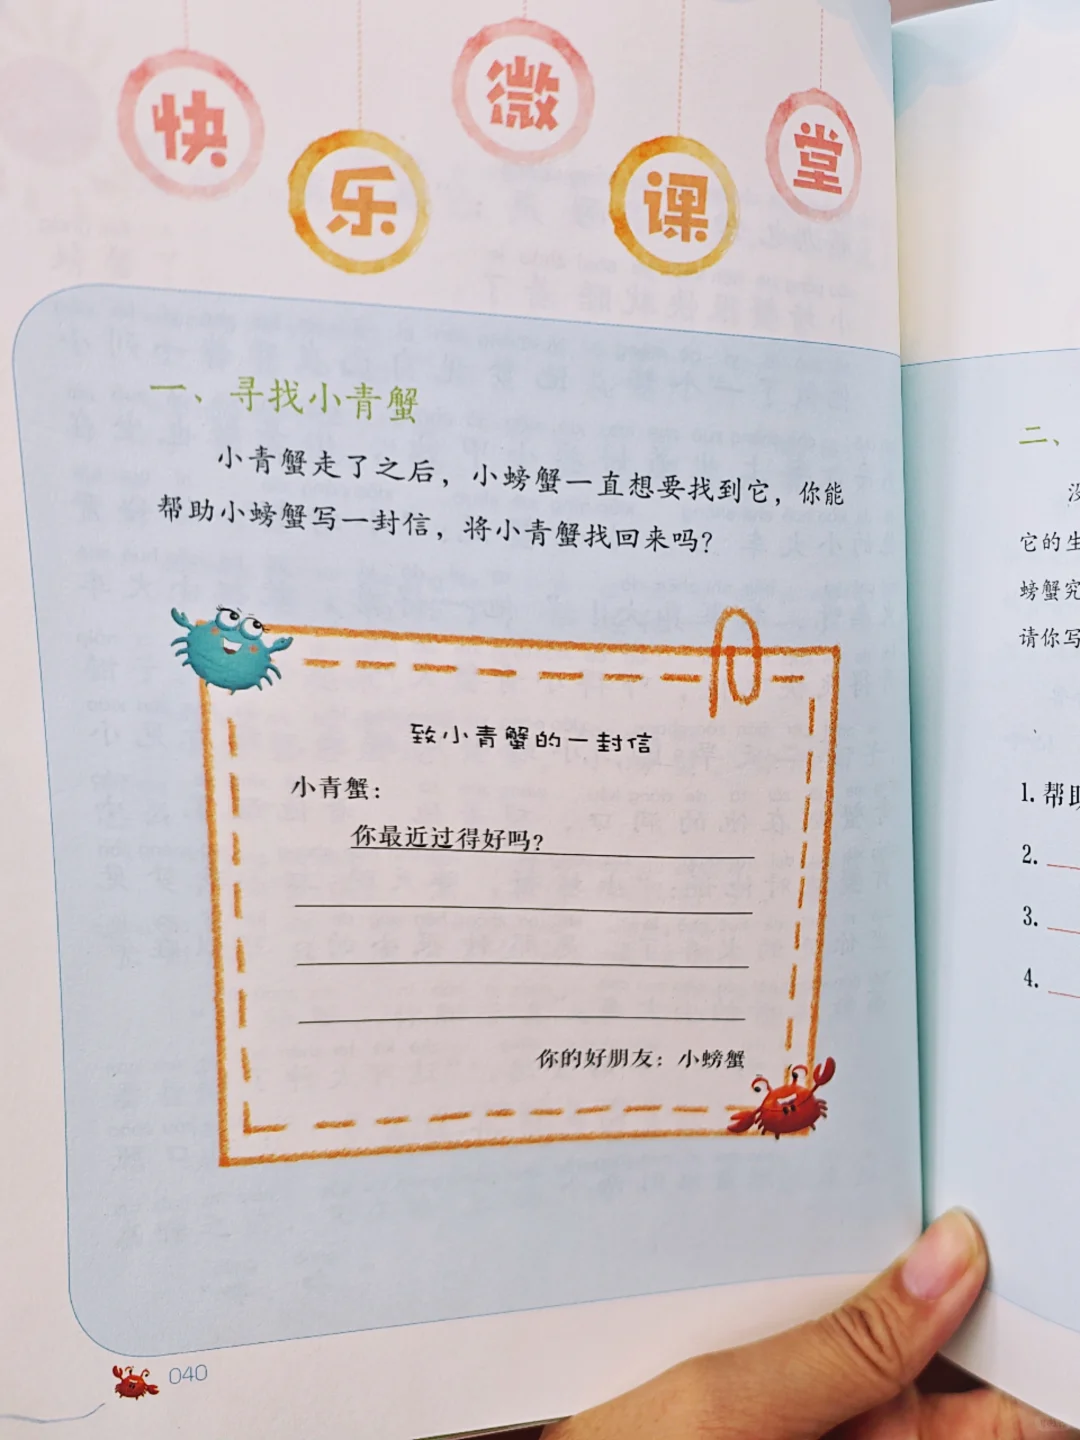 快乐微课堂
一、寻找小青蟹
小青蟹走了之后，小螃蟹一直想要找到它，你能
帮助小螃蟹写一封信，将小青蟹找回来吗？
致小青蟹的一封信
小青蟹：
你最近过得好吗？
你的好朋友：小螃蟹
040
二、
它的生
螃蟹究
请你写
1.帮助
2.
3.
4.